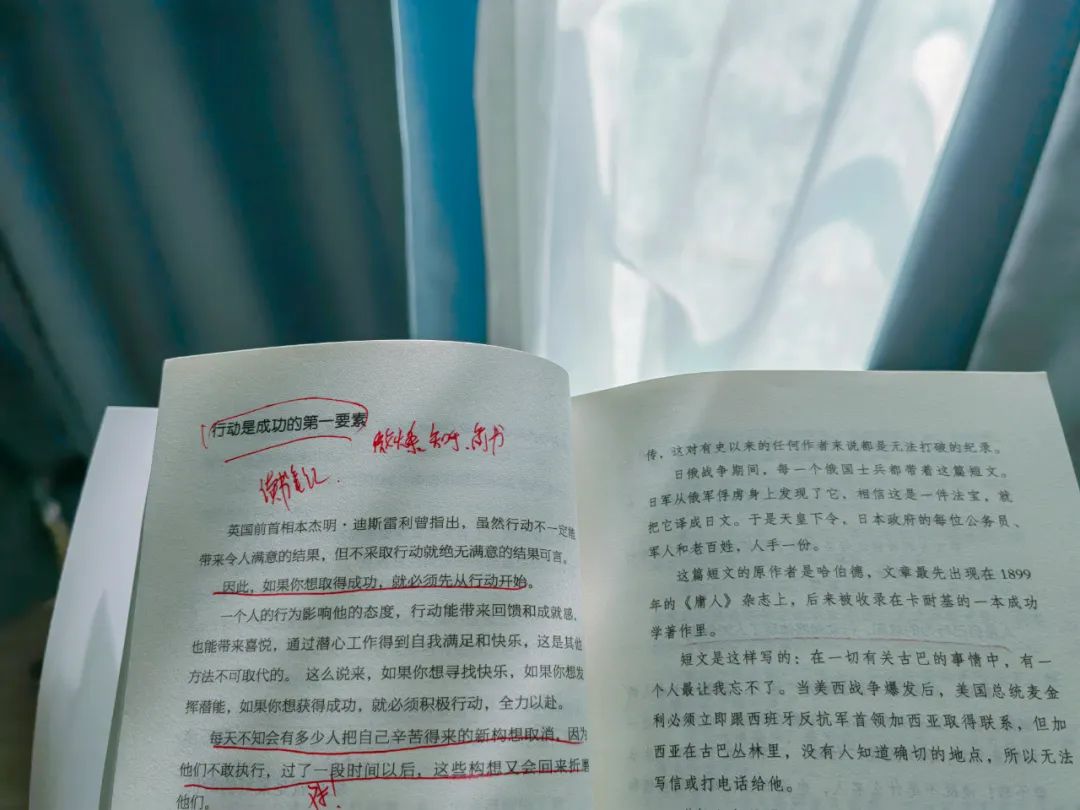 行动是成功的第一要素
英国前首相本杰明·迪斯雷利曾指出，虽然行动不一定能
带来令人满意的结果，但不采取行动就绝无满意的结果可言。
因此，如果你想取得成功，就必须先从行动开始。
一个人的行为影响他的态度，行动能带来回馈和成就感，
也能带来喜悦，通过潜心工作得到自我满足和快乐，这是其他
方法不可取代的。这么说来，如果你想寻找快乐，如果你想发
挥潜能，如果你想获得成功，就必须积极行动，全力以赴。
每天不知会有多少人把自己辛苦得来的新构想取消，因为
他们不敢执行，过了一段时间以后，这些构想又会回来折磨
他们。
传，这对有史以来的任何作者来说都是无法打破的纪录。
日俄战争期间，每一个俄国士兵都带着这篇短文。
日军从俄军俘虏身上发现了它，相信这是一件法宝，就
把它译成日文。于是天皇下令，日本政府的每位公务员、
军人和老百姓，人手一份。
这篇短文的原作者是哈伯德，文章最先出现在1899
年的《庸人》杂志上，后来被收录在卡耐基的一本成功
学著作里。
短文是这样写的：在一切有关古巴的事情中，有一
个人最让我忘不了。当美西战争爆发后，美国总统麦金
利必须立即跟西班牙反抗军首领加西亚取得联系，但加
西亚在古巴丛林里，没有人知道确切的地点，所以无法
写信或打电话给他。